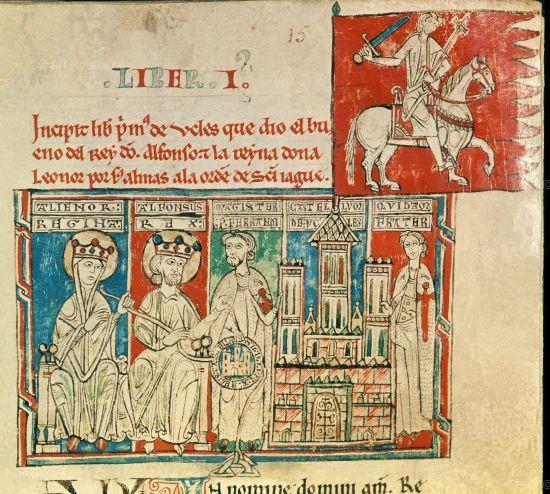 15
LIBER · I ?
Incipit lib p̄mº de Veles que dio el bu
eno del Rey dō. Alfonso τ la reyna dona
Leonor por Ꝟ almas a la ordē de Sci iague.
ALIENOR: REGINA:
ALFONSUS REX:
MAGISTER P. FERRANDI
CASTELLUM DE UCLES
QVIDAM FRATER
nomine domini am̄. Re